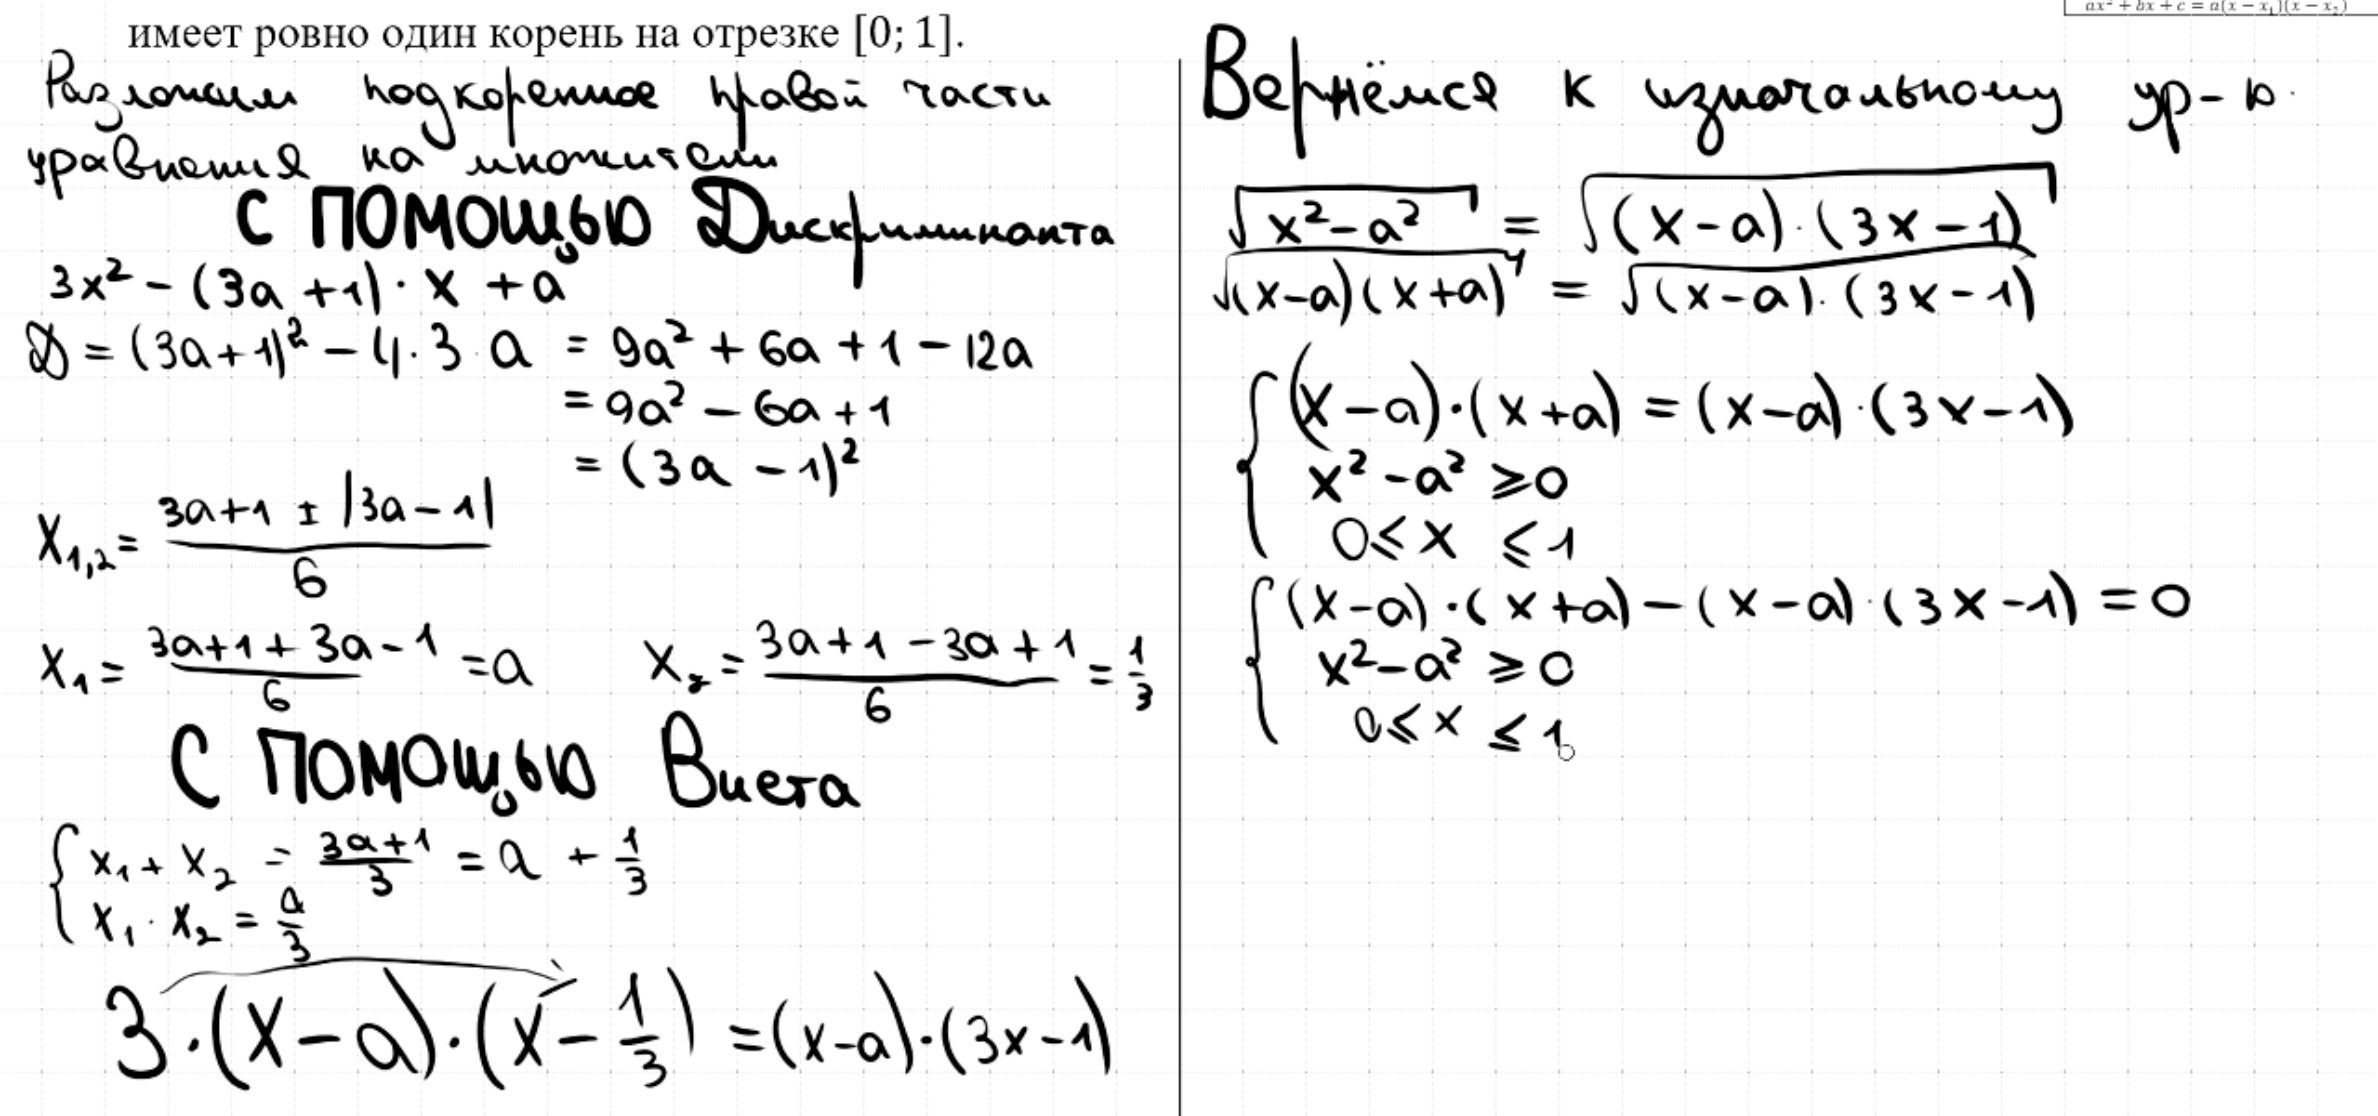 имеет ровно один корень на отрезке [0; 1].
Разложим подкоренное правой части
уравнения на множители
с помощью Дискриминанта
3x² - (3a + 1) · x + a
D = (3a + 1)² - 4 · 3 · a = 9a² + 6a + 1 - 12a
= 9a² - 6a + 1
= (3a - 1)²
x₁,₂ = (3a + 1 ± |3a - 1|) / 6
x₁ = (3a + 1 + 3a - 1) / 6 = a x₂ = (3a + 1 - 3a + 1) / 6 = 1/3
С помощью Виета
{ x₁ + x₂ = (3a + 1) / 3 = a + 1/3
x₁ · x₂ = a/3
3 · (x - a) · (x - 1/3) = (x - a) · (3x - 1)
ax² + bx + c = a(x - x₁)(x - x₂)
Вернёмся к изначальному ур-ю.
√(x² - a²) = √((x - a) · (3x - 1))
√((x - a)(x + a)) = √((x - a) · (3x - 1))
{ (x - a) · (x + a) = (x - a) · (3x - 1)
x² - a² ≥ 0
0 ≤ x ≤ 1
{ (x - a) · (x + a) - (x - a) · (3x - 1) = 0
x² - a² ≥ 0
0 ≤ x ≤ 1